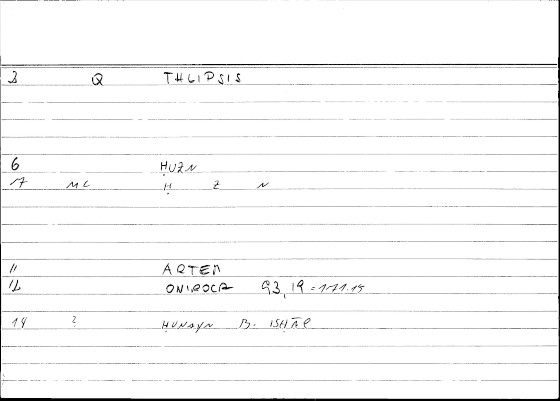 3 Q THLIPSIS
6 ḤUZN
17 ML Ḥ Z N
11 ARTEM
12 ONIROCR 93,19 = 171.15
14 ? ḤUNAYN B. ISḤĀQ